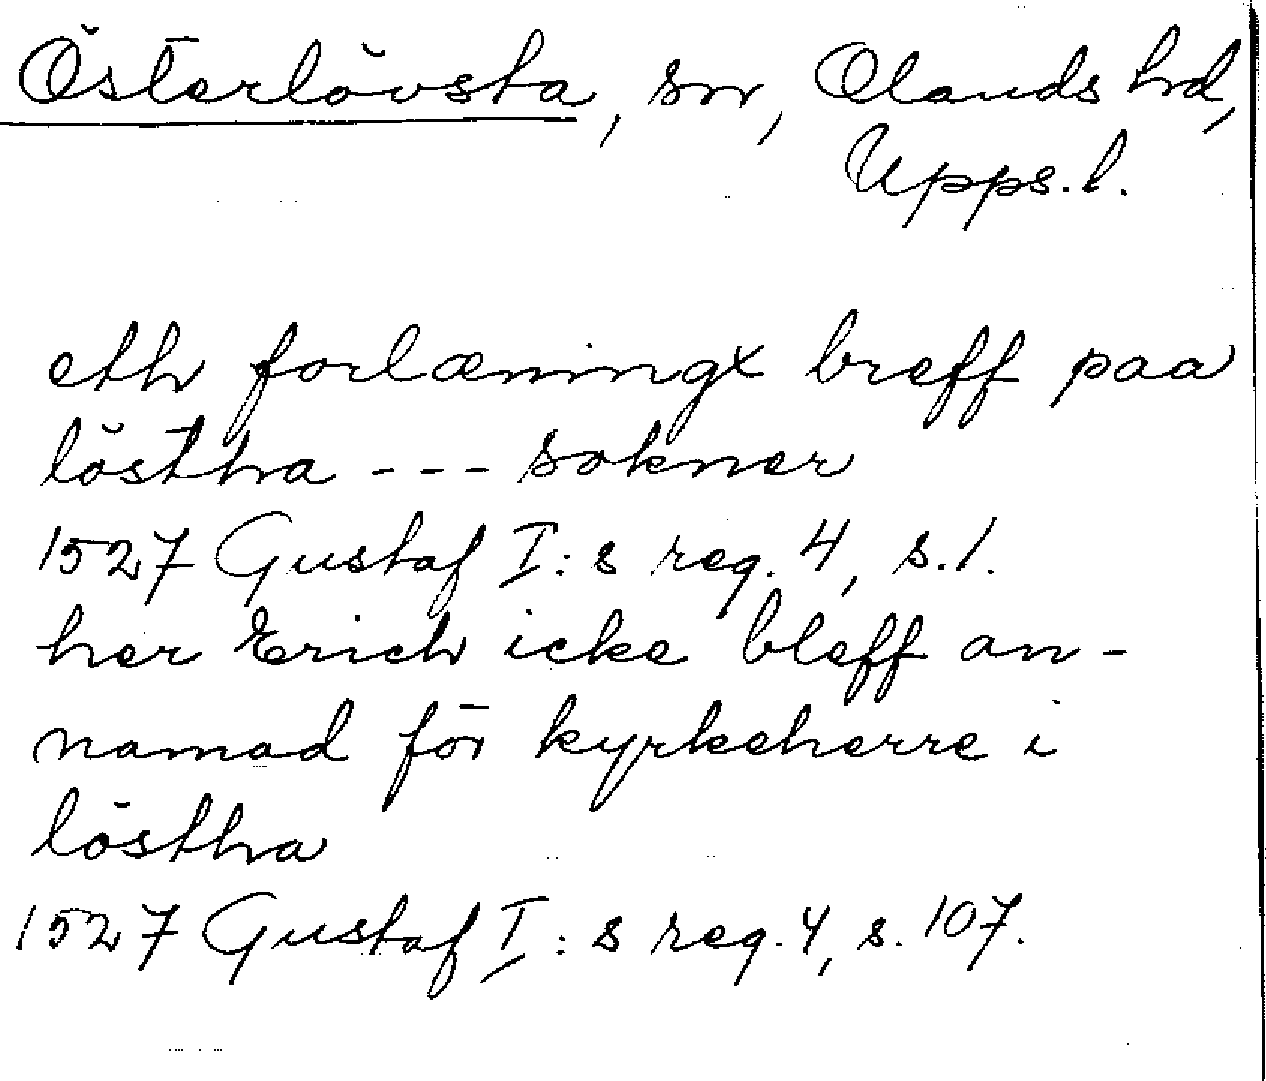 Österlövsta, sn, Olands hd,
Upps.l.
eth forlæningx breff paa
löstha --- sokner
1527 Gustaf I:s reg. 4, s.1.
her Erich icke bleff an-
namad för kyrkeherre i
löstha
1527 Gustaf I:s reg. 4, s. 107.